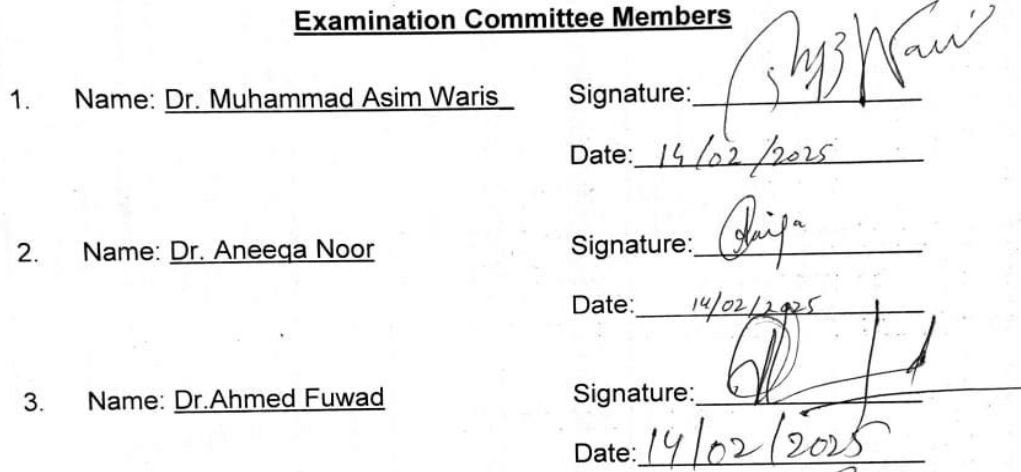 Examination Committee Members
1. Name: Dr. Muhammad Asim Waris Signature:
Date: 14/02/2025
2. Name: Dr. Aneeqa Noor Signature:
Date: 14/02/2025
3. Name: Dr.Ahmed Fuwad Signature:
Date: 14/02/2025